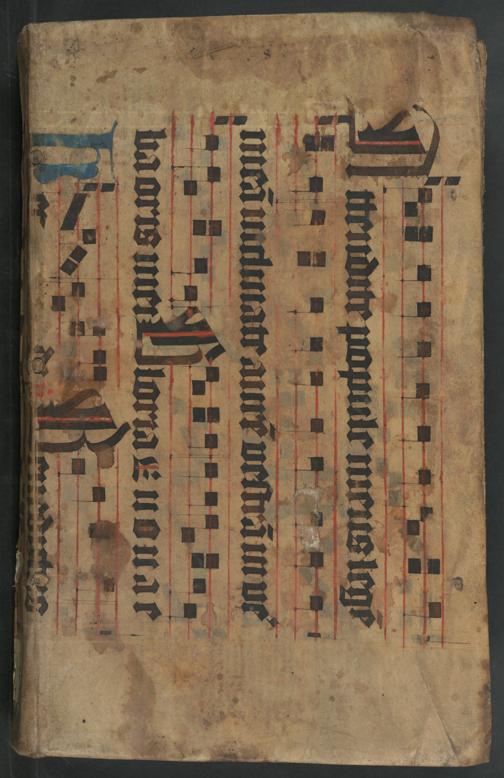 Attendite popule meus legē
meā inclinate aurē vestrā in ve
ba oris mei Gloria E u o u a e
Benedictus